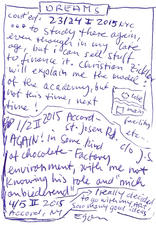 DREAMS
cont'ed. 23/24 II 2015 NYC
... to study there again,
even though in my late
age, but i can sell stuff
to finance it. Christian
will explain me the model
of the academy, but
not this time, next
time!
facility
etc.
1/2 II 2015 Accord
St. Josen Rd.
AGAIN: in some kind
of chocolate-factory
environment, with me not
knowing his role and "mich
anbiedernd"
4/5 II 2015
Accord, NY
I really decided
to go with my